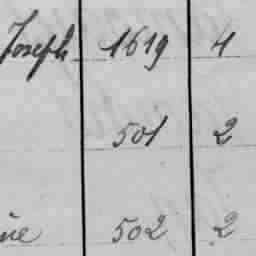 Joseph 1619 4
501 2
ine 502 2